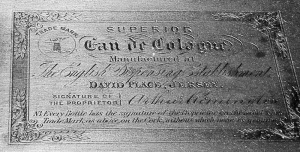 TRADE MARK
SUPERIOR
Eau de Cologne
Manufactured at
The English Dispensing Establishment
DAVID PLACE, JERSEY.
SIGNATURE OF
THE PROPRIETOR
Every Bottle has the signature of the Proprietor
Trade Mark as above on the Cork, without which none